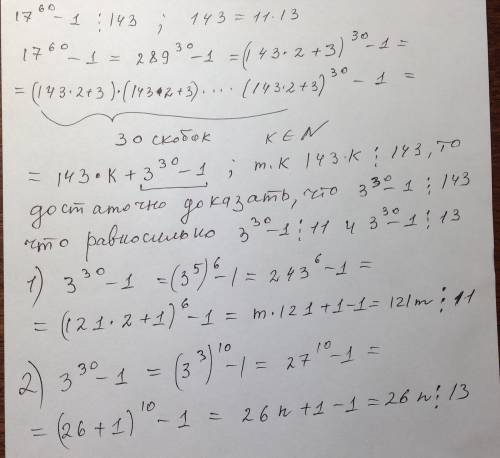 17⁶⁰-1 ⋮ 143 ; 143 = 11·13
17⁶⁰-1 = 289³⁰-1 = (143·2+3)³⁰-1 =
= (143·2+3)·(143·2+3)·...·(143·2+3)³⁰-1 =
30 скобок K∈N
= 143·K + 3³⁰-1 ; т.к 143·K ⋮ 143, то
достаточно доказать, что 3³⁰-1 ⋮ 143
что равносильно 3³⁰-1 ⋮ 11 и 3³⁰-1 ⋮ 13
1) 3³⁰-1 = (3⁵)⁶-1 = 243⁶-1 =
= (121·2+1)⁶-1 = m·121+1-1 = 121m ⋮ 11
2) 3³⁰-1 = (3³)¹⁰-1 = 27¹⁰-1 =
= (26+1)¹⁰-1 = 26n+1-1 = 26n ⋮ 13